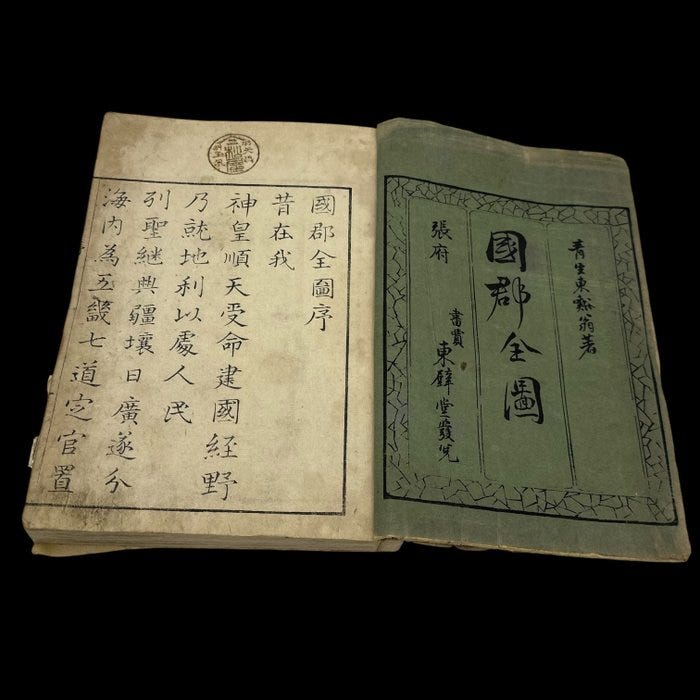 青生東谿翁著
國郡全圖
張府
書賈 東壁堂發兌
國郡全圖序
昔在我
神皇順天受命建國経野
乃就地利以處人民
列聖継興疆壤日廣遂分
海内為五畿七道定官置